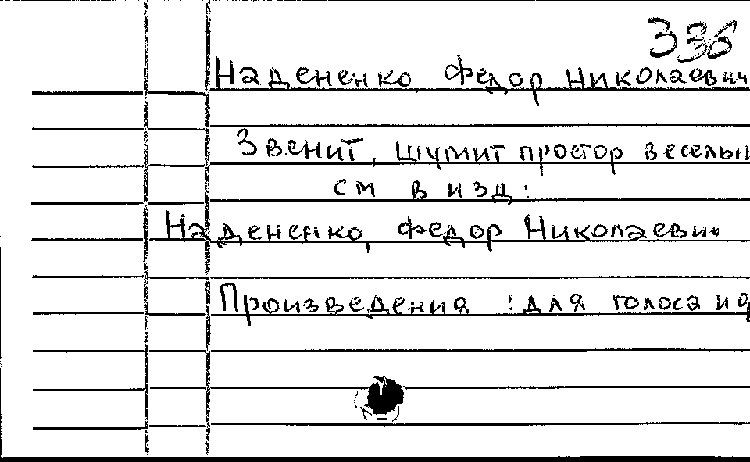 336
Надененко, Федор Николаевич
Звенит, шумит простор веселы
см в изд:
Надененко, Федор Николаевич
Произведения : для голоса и ф